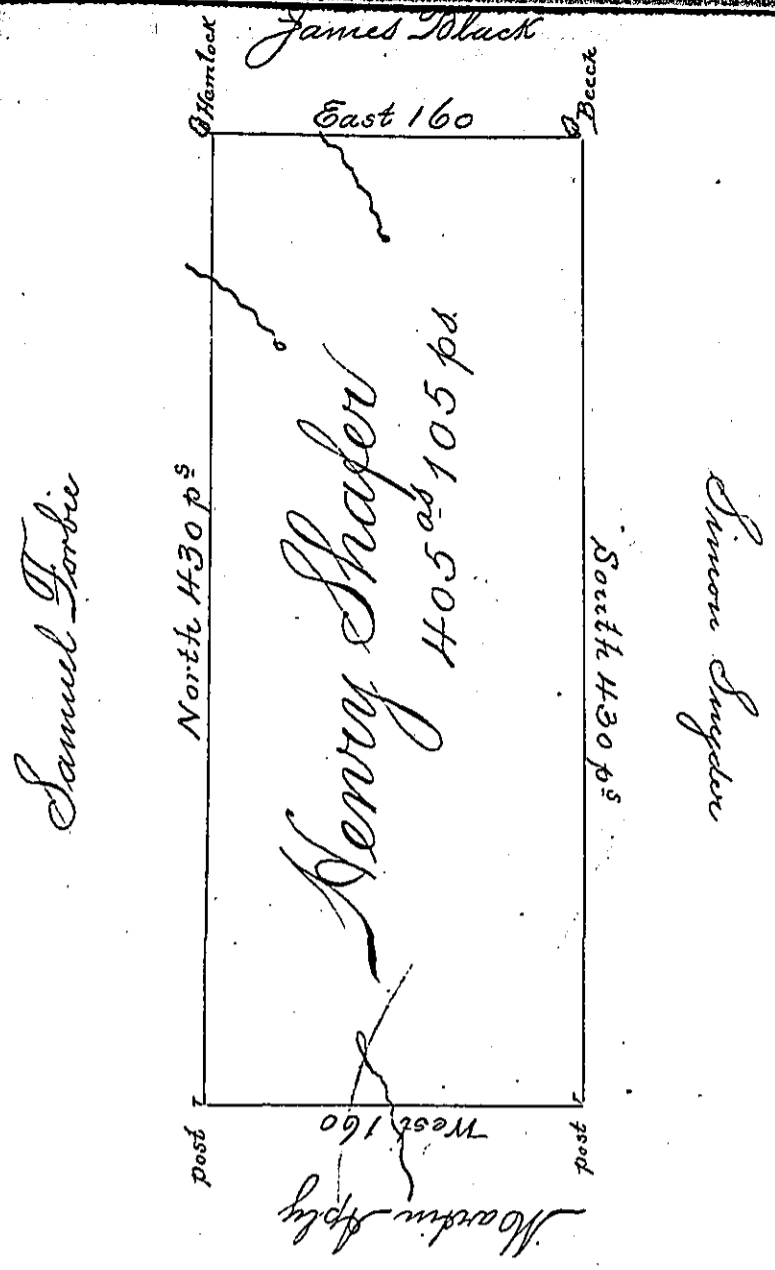 James Black
Hemlock
East 160
Beech
Samuel
North 430 ps
Henry Shafer
405 as 105 ps.
South 430 ps
Simon Snyder
post
West 160
post
Martin Aply